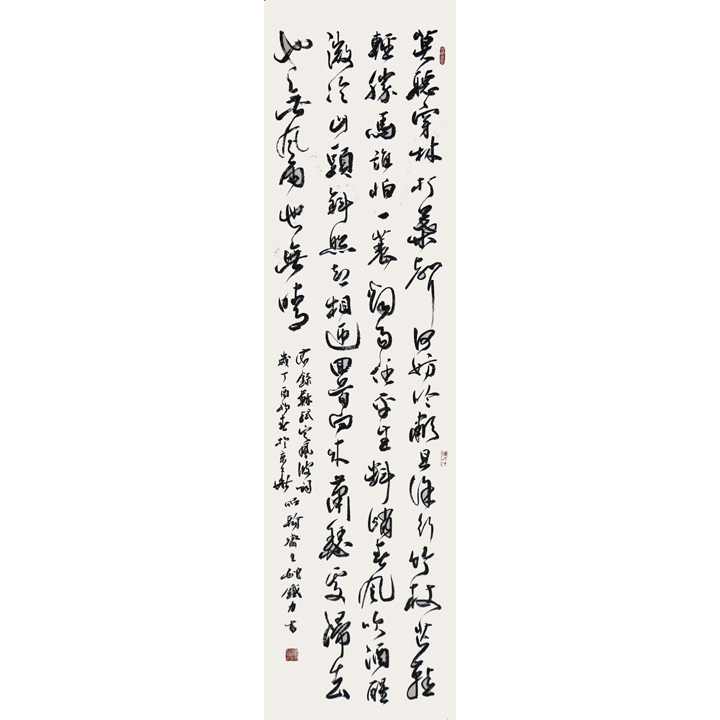 莫聽穿林打葉聲何妨吟嘯且徐行竹杖芒鞋
輕勝馬誰怕一蓑煙雨任平生料峭春風吹酒醒
微冷山頭斜照却相迎回首向來蕭瑟處歸去
也無風雨也無晴
右錄蘇軾定風波詞
歲丁酉春於京華 鐵力書